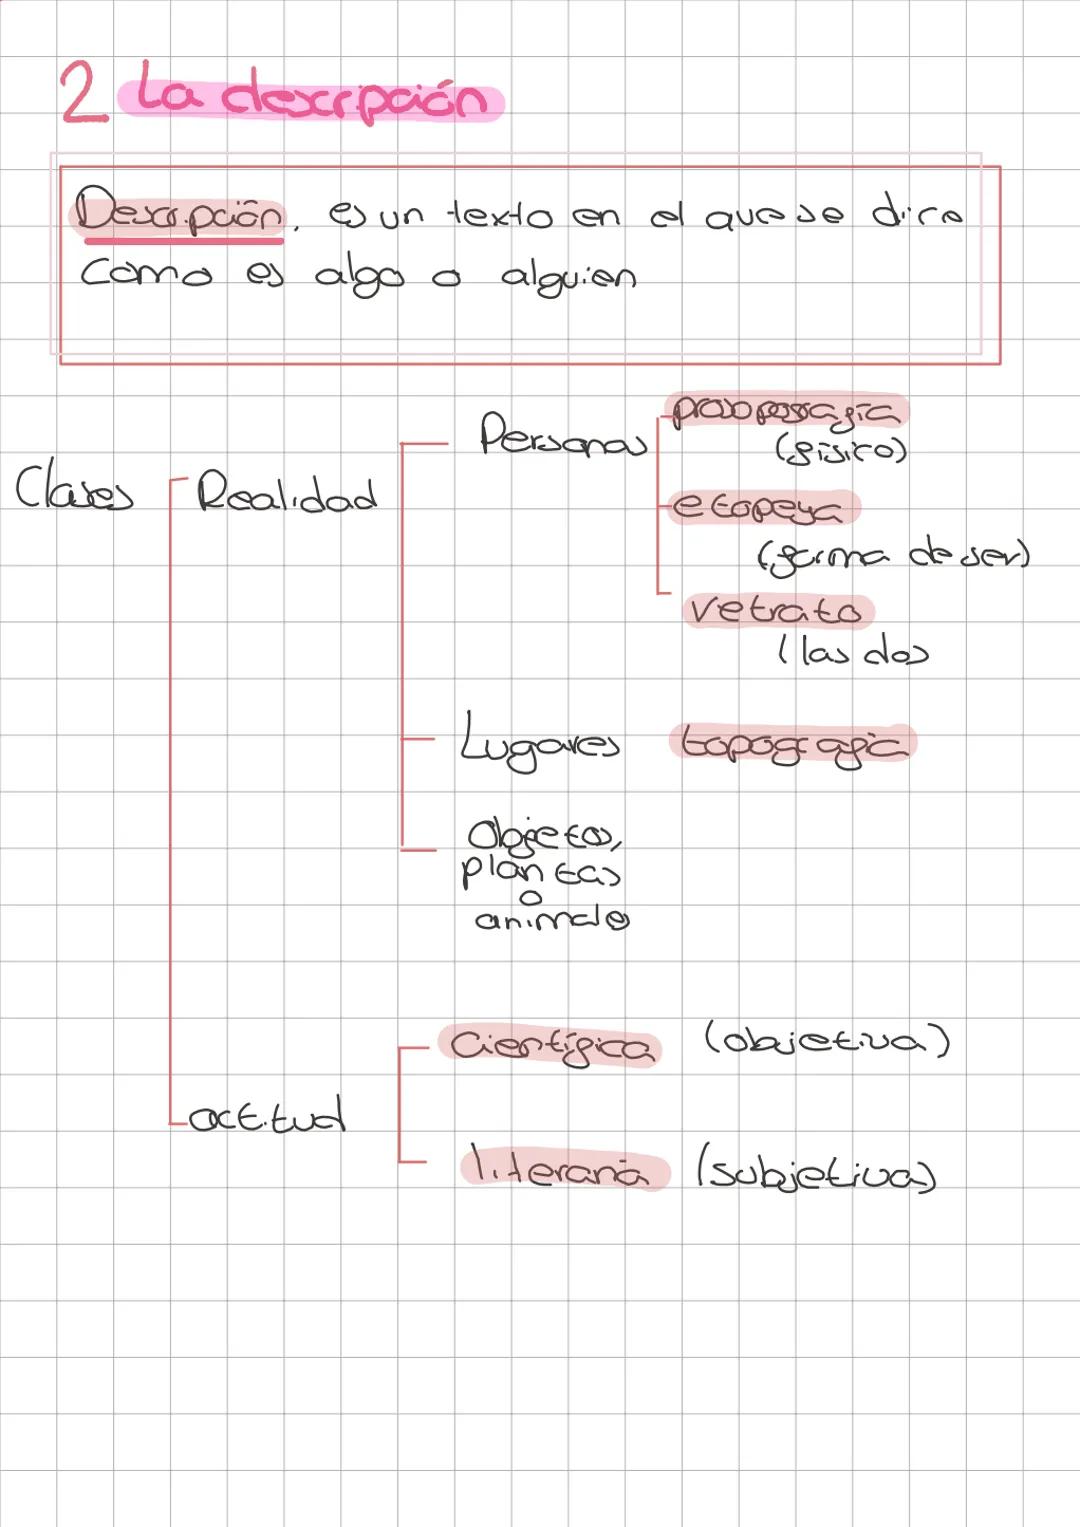 2 La descripción
Descripción, es un texto en el que se dice
como es algo o alguien
Clases
Realidad
Personas
prosopografía
(físico)
etopeya
(forma de ser)
retrato
(las dos
Lugares topografía
Objetos,
plantas
o
animales
actitud
científica (objetiva)
literaria (subjetiva)